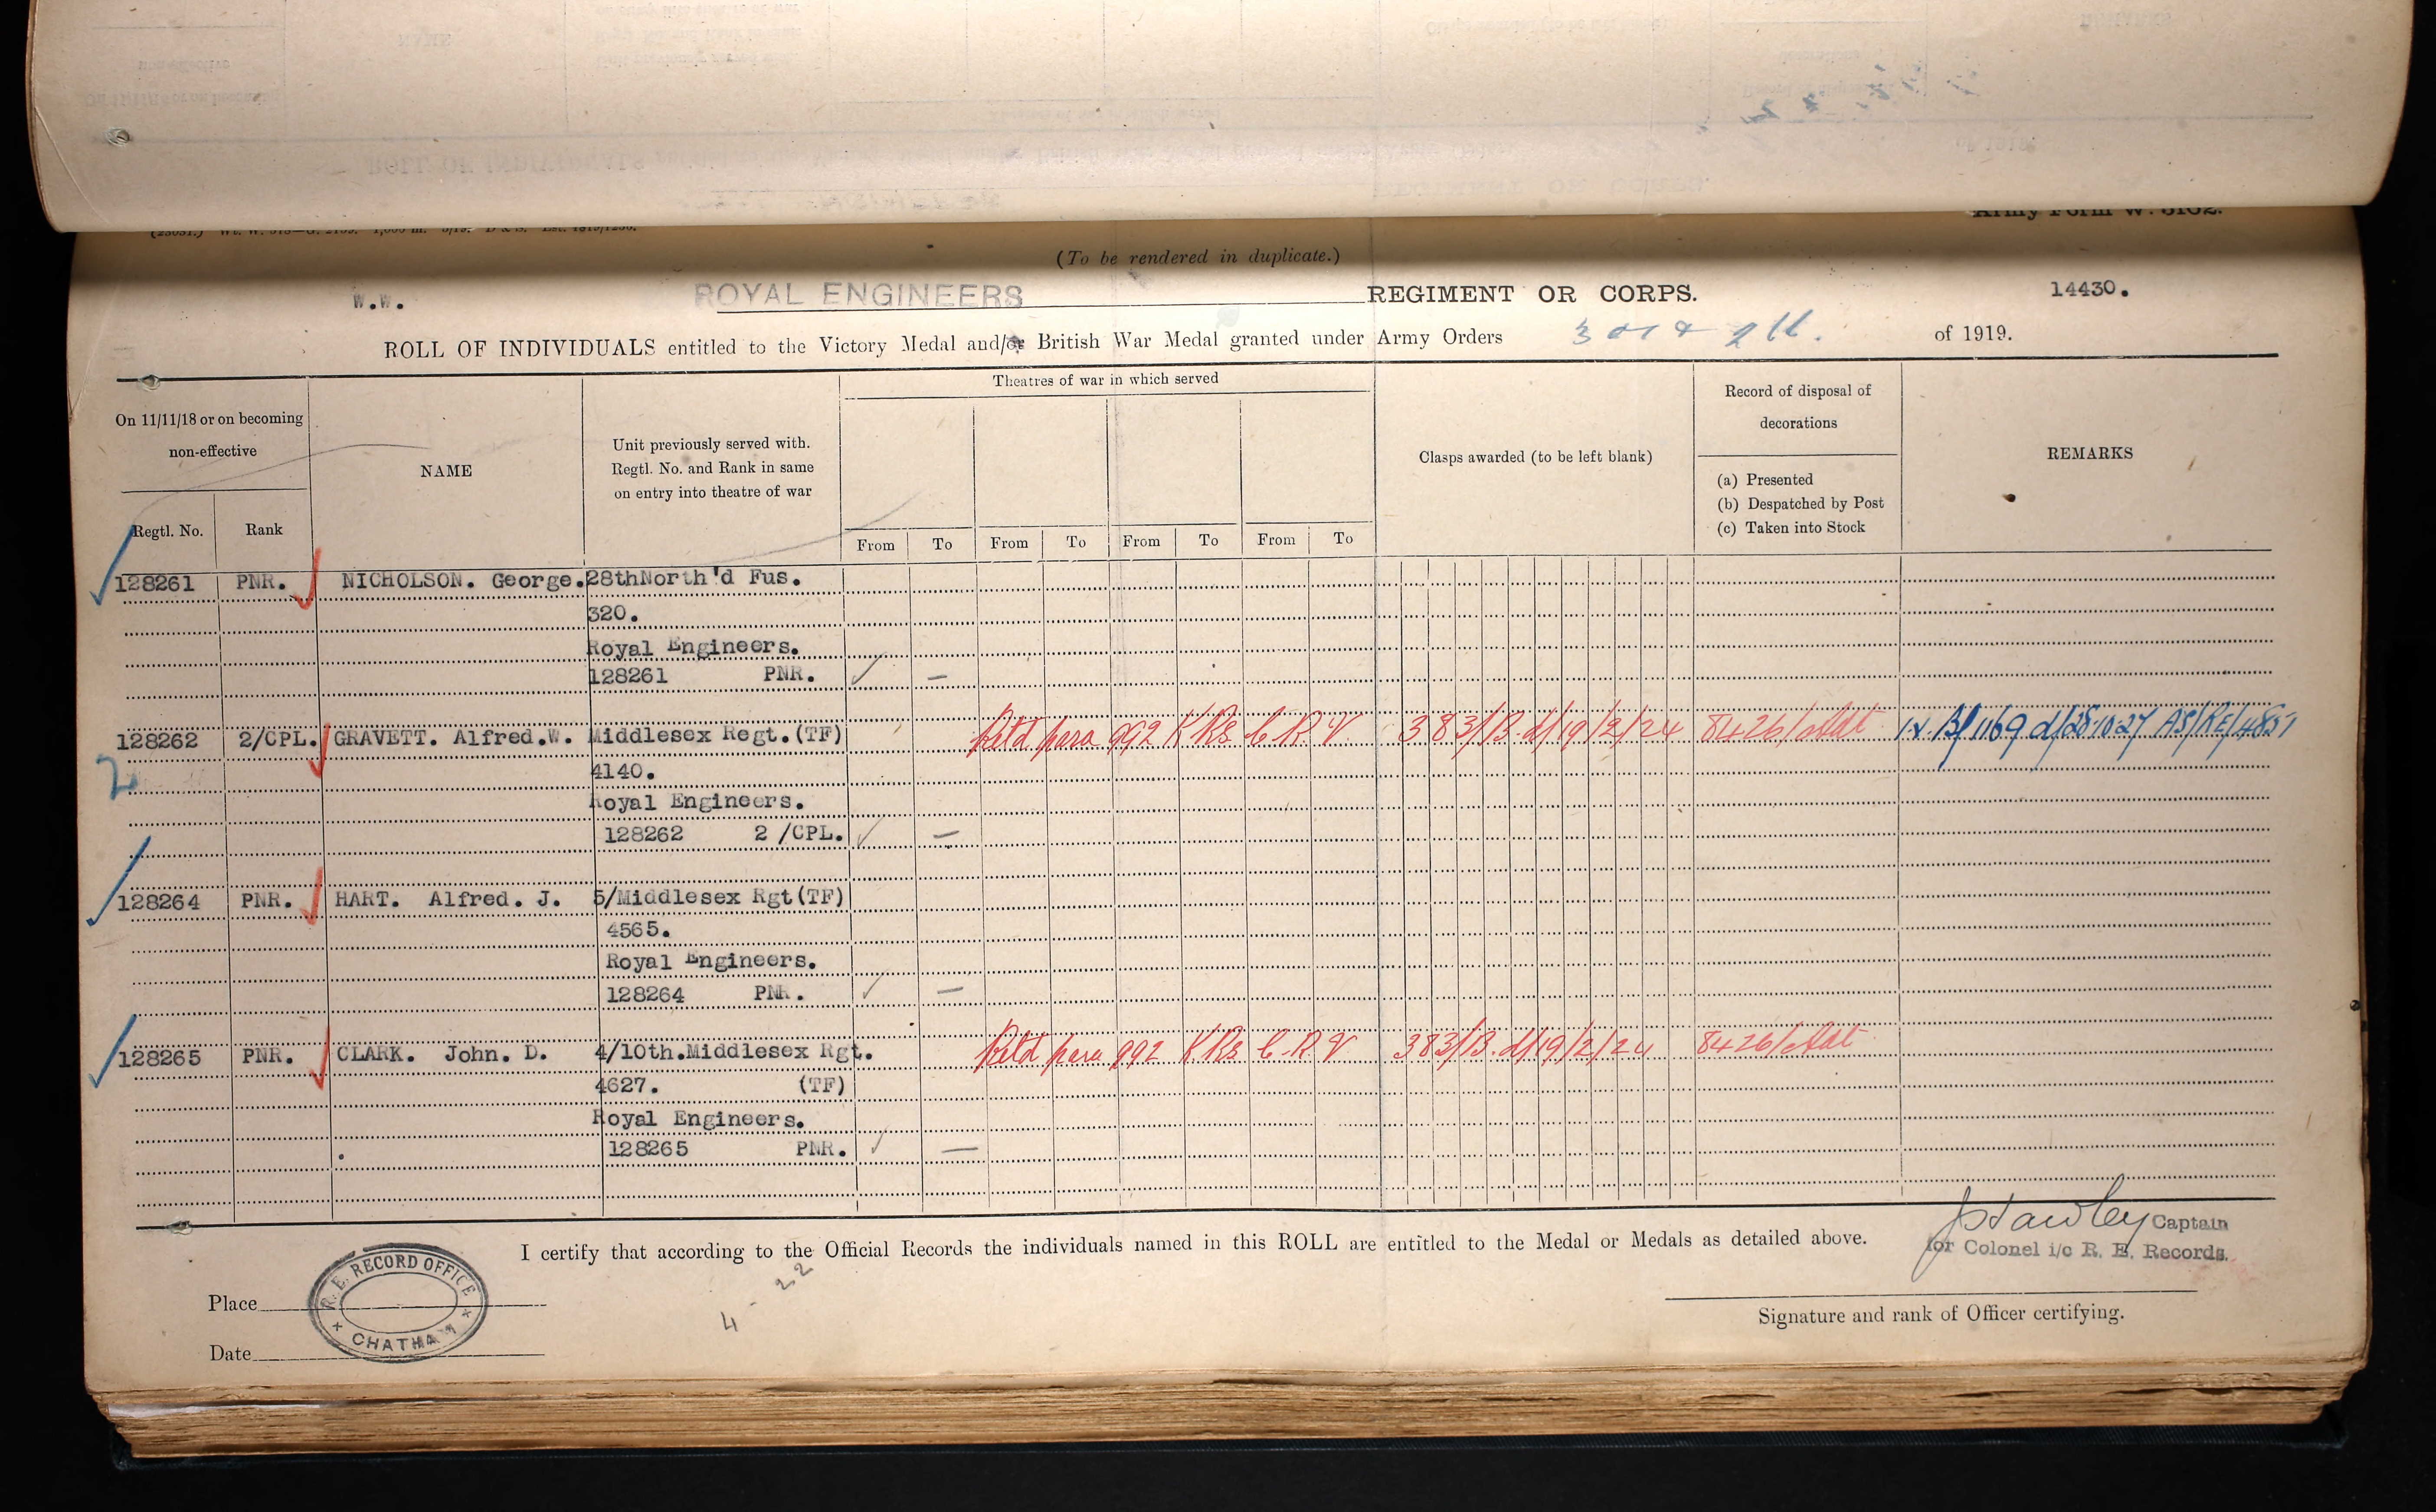 Army Form W. 5102.
(To be rendered in duplicate.)
W.W. ROYAL ENGINEERS REGIMENT OR CORPS. 14430.
ROLL OF INDIVIDUALS entitled to the Victory Medal and/or British War Medal granted under Army Orders 301 & 266. of 1919.
Theatres of war in which served
On 11/11/18 or on becoming
non-effective
NAME
Unit previously served with.
Regtl. No. and Rank in same
on entry into theatre of war
Clasps awarded (to be left blank)
Record of disposal of
decorations
(a) Presented
(b) Despatched by Post
(c) Taken into Stock
REMARKS
Regtl. No. Rank From To From To From To From To
128261 PNR. NICHOLSON. George. 28thNorth'd Fus.
320.
Royal Engineers.
128261 PNR. ✓ —
128262 2/CPL. GRAVETT. Alfred.W. Middlesex Regt.(TF) Retd para 992 K Rs C R V 383/B d/19/2/24 8426/Adt I.V. B/1169 d/28.10.27 AS/RE/4857
2
4140.
Royal Engineers.
128262 2 /CPL. ✓ —
128264 PNR. HART. Alfred. J. 5/Middlesex Rgt(TF)
4565.
Royal Engineers.
128264 PNR. ✓ —
128265 PNR. CLARK. John. D. 4/10th.Middlesex Rgt. Retd para 992 K Rs C R V 383/B. d/19/2/24 8426/Adt
4627. (TF)
Royal Engineers.
128265 PNR. ✓ —
Captain
for Colonel i/c R. E. Records.
I certify that according to the Official Records the individuals named in this ROLL are entitled to the Medal or Medals as detailed above.
4 - 22
Place
R. E. RECORD OFFICE
CHATHAM
Signature and rank of Officer certifying.
Date